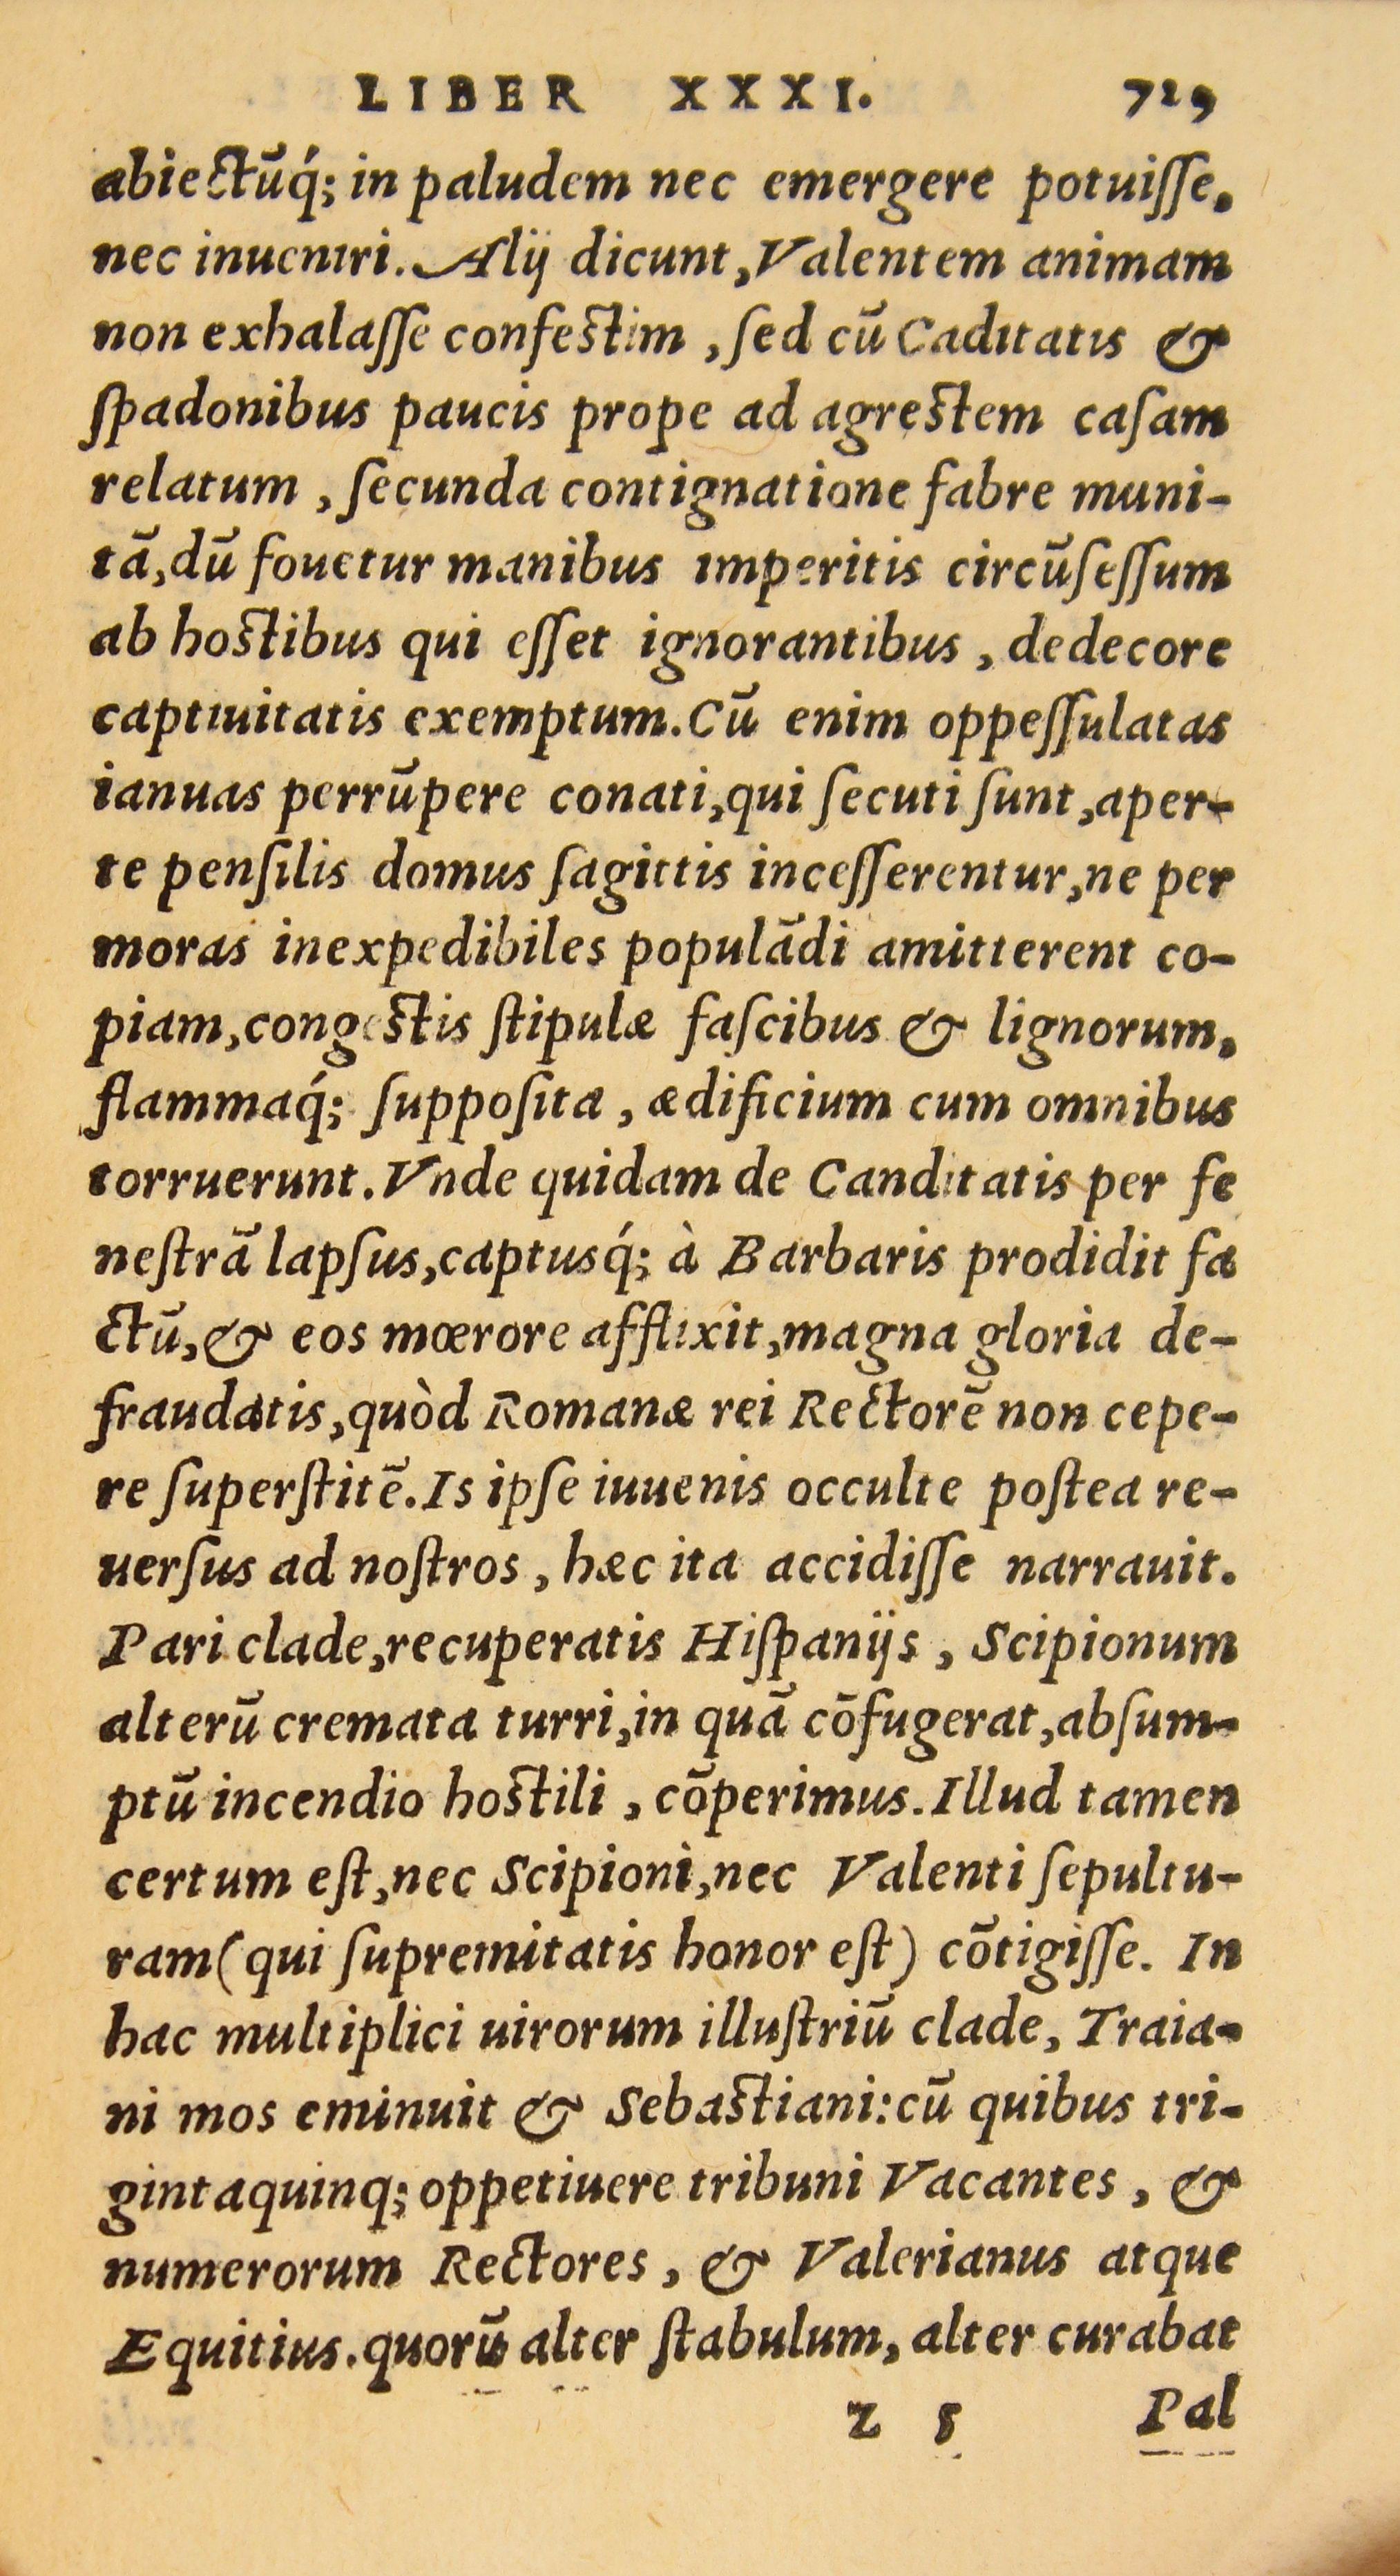 LIBER XXXI. 729
abiectũq́; in paludem nec emergere potuiſſe,
nec inueniri. Alij dicunt, Valentem animam
non exhalaſſe confeſtim, ſed cũ Caditatis &
ſpadonibus paucis prope ad agreſtem caſam
relatum, ſecunda contignatione fabre muni-
tã, dũ fouetur manibus imperitis circũſeſſum
ab hoſtibus qui eſſet ignorantibus, dedecore
captiuitatis exemptum. Cũ enim oppeſſulatas
ianuas perrũpere conati, qui ſecuti ſunt, aper-
te penſilis domus ſagittis inceſſerentur, ne per
moras inexpedibiles populãdi amitterent co-
piam, congeſtis ſtipulæ faſcibus & lignorum,
flammaq́; ſuppoſita, ædificium cum omnibus
torruerunt. Vnde quidam de Canditatis per fe
neſtrã lapſus, captusq́; à Barbaris prodidit fa
ctũ, & eos mœrore afflixit, magna gloria de-
fraudatis, quòd Romanæ rei Rectorẽ non cepe-
re ſuperſtitẽ. Is ipſe iuuenis occulte poſtea re-
uerſus ad noſtros, hæc ita accidiſſe narrauit.
Pari clade, recuperatis Hiſpanijs, Scipionum
alterũ cremata turri, in quã cõfugerat, abſum-
ptũ incendio hoſtili, cõperimus. Illud tamen
certum eſt, nec Scipioni, nec Valenti ſepultu-
ram (qui ſupremitatis honor eſt) cõtigiſſe. In
hac multiplici uirorum illuſtriũ clade, Traia-
ni mos eminuit & Sebaſtiani: cũ quibus tri-
gintaquinq; oppetiuere tribuni Vacantes, &
numerorum Rectores, & Valerianus atque
Equitius. quorũ alter ſtabulum, alter curabat
z 5 Pal